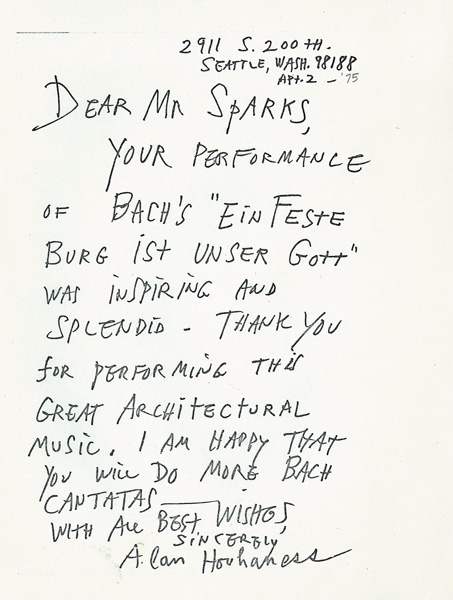 2911 S. 200TH.
SEATTLE, WASH. 98188
APT. 2 - '75
DEAR MR SPARKS,
YOUR PERFORMANCE
OF BACH'S "EIN FESTE
BURG IST UNSER GOTT"
WAS INSPIRING AND
SPLENDID - THANK YOU
FOR PERFORMING THIS
GREAT ARCHITECTURAL
MUSIC. I AM HAPPY THAT
YOU WILL DO MORE BACH
CANTATAS
WITH ALL BEST WISHES,
SINCERELY
Alan Hovhaness